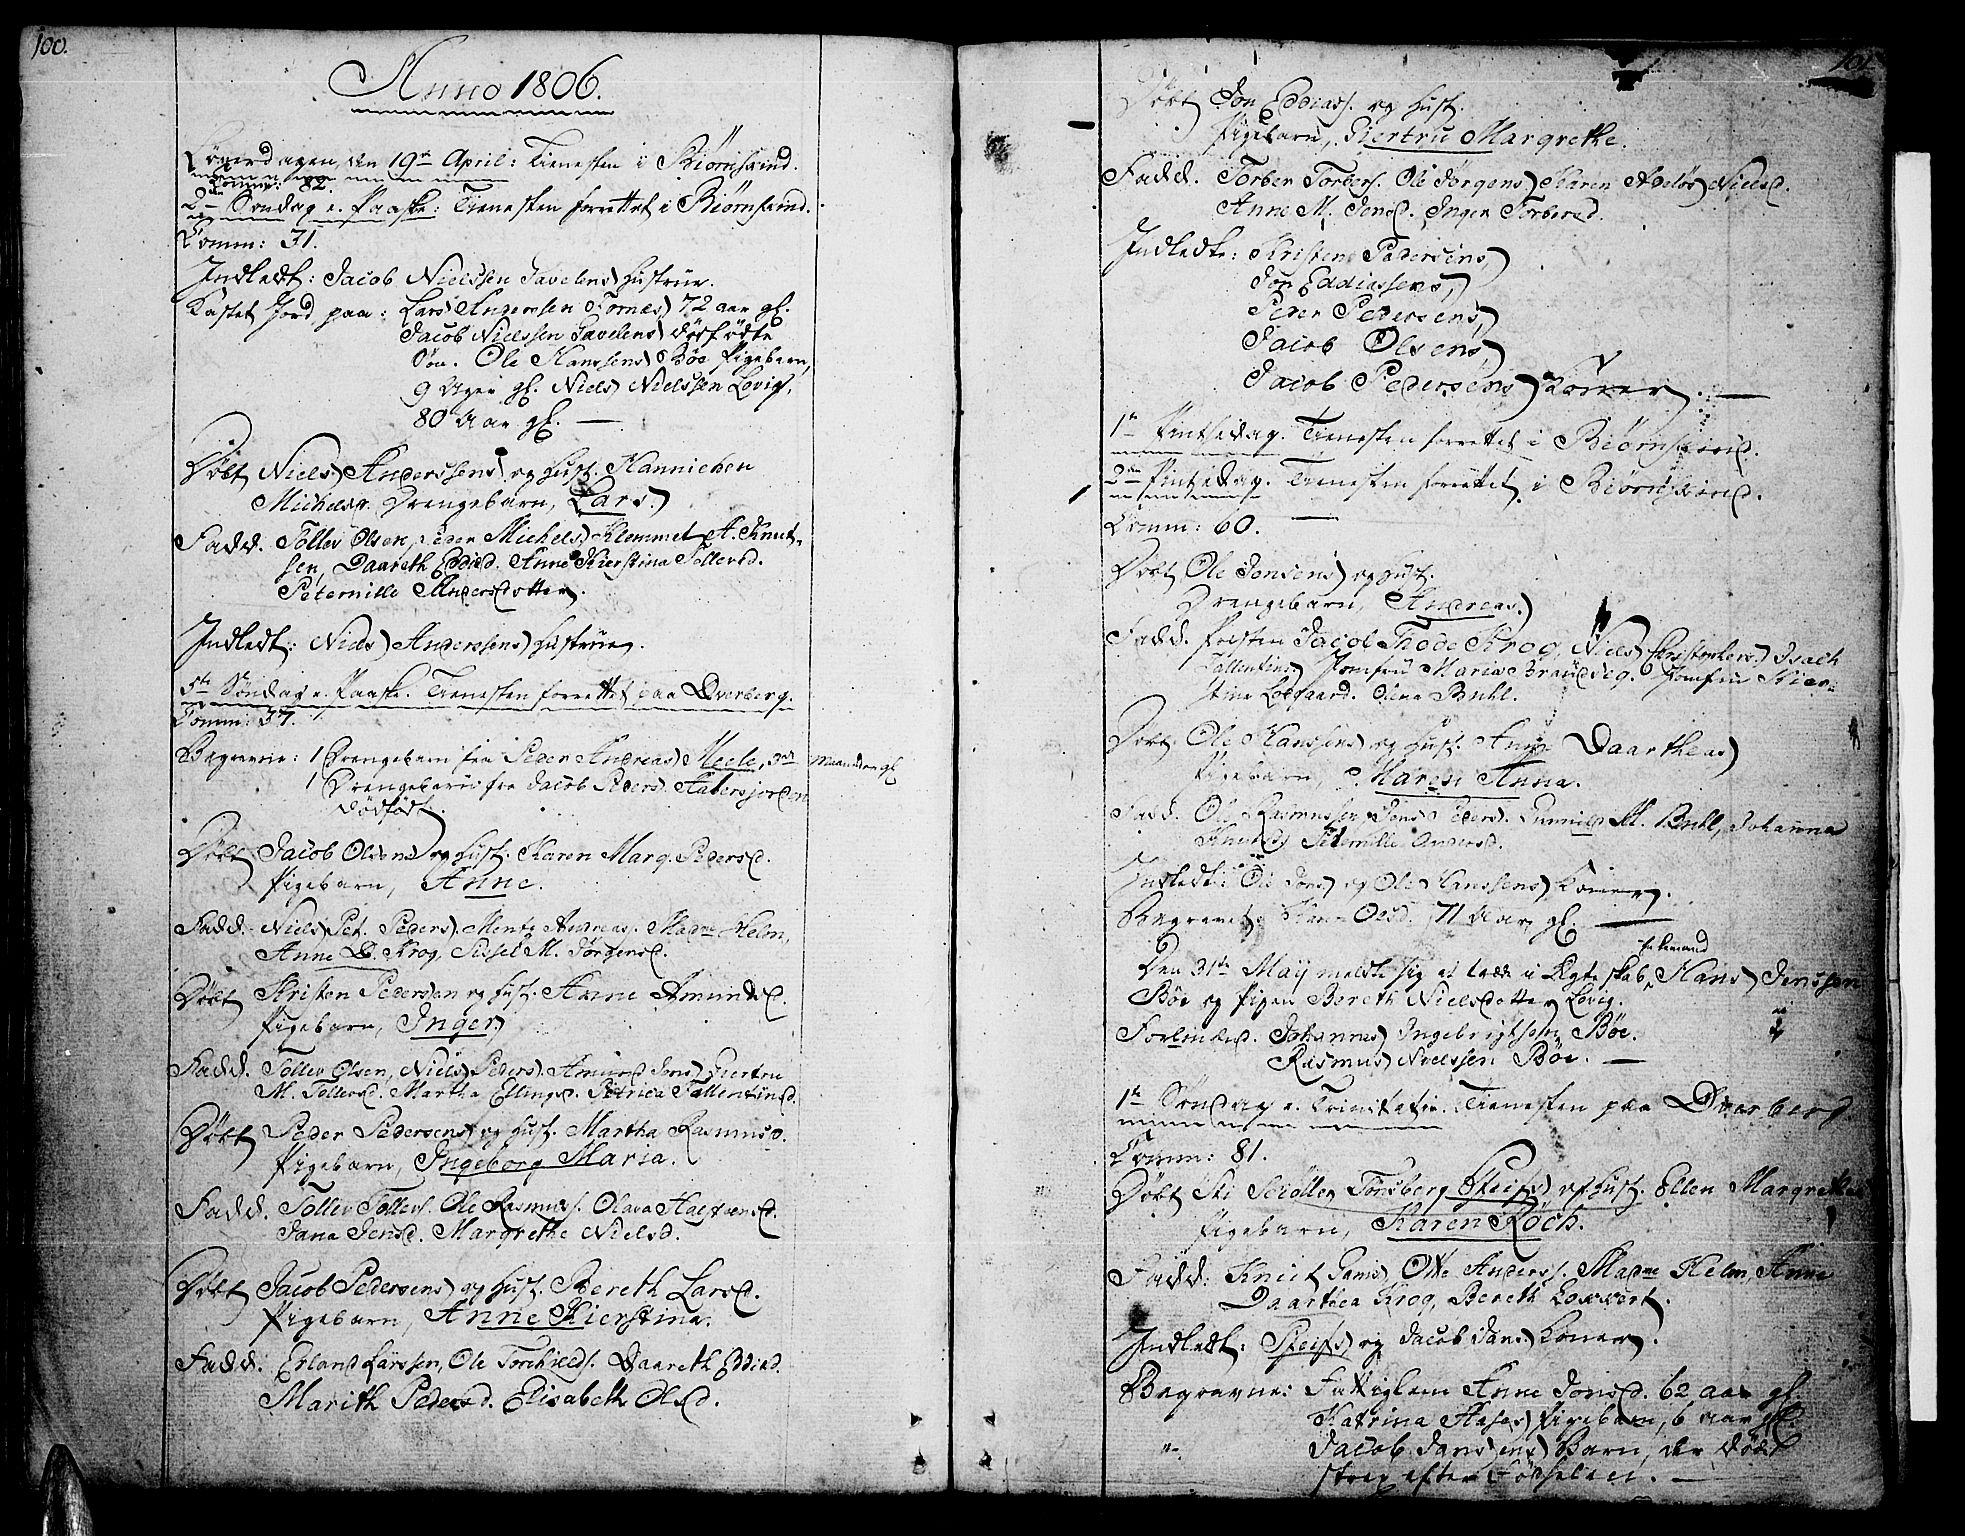 100.
Anno 1806.
Løverdagen, den 19de April: Tienesten i Biørnsund.
Comm: 82.
2den Søndag e. Paaske: Tienesten forrettet i Biørnsund.
Comm: 31.
Indledt: Jacob Nielssen Havelens Hustrue.
Kastet Jord paa: Lars 72 aar gl.
Jacob Nielssen dødfødte
Søn. Ole Hanssens Bøe Pigebarn,
9 Uger gl. Niels Nielssen Lovig,
80 Aar gl. —
Døbt Niels Anderssens og Hust. Hannichen
Michelsd. Drengebarn, Lars
Fadd. Tollev Olsen, Peder Michels. Klemmet A. Knut-
sen, Daareth Eddisd. Anne Kierstina Tollevsd.
Peternille Andersdotter.
Indledt: Niels Anderssens Hustrue.
5te Søndag e. Paaske. Tienesten forrettet paa Dverberg.
Comm: 37.
Begravne: 1 Drengebarn fra Peder Andreas Meele, 3 maaneder gl.
1 Drengebarn fra Jacob Peders.
dødfødt.
Døbt Jacob Olsens og Hust. Karen Marg. Pedersd.
Pigebarn, Anne.
Fadd. Niels Pet. Peders. Mentz Andreas. Madme Helm,
Anne D. Krog, Sissel M. Jørgensd.
Døbt Kristen Pedersen og Hust. Anne Amundsd.
Pigebarn, Inger
Fadd. Tollev Olsen, Niels Peders. Amund Jens. Giertru
M. Tollevsd. Martha Ellingsd. Petrica Fallentinsd.
Døbt Peder Pedersens og Hust. Martha Rasmusd.
Pigebarn, Ingeborg Maria.
Fadd. Tollev Tollevs. Ole Rasmuss. Olava Halfvensd.
Jana Jensd. Margrethe Nielsd.
Døbt Jacob Pedersens og Hust. Bereth Larsd.
Pigebarn, Anne Kierstina.
Fadd: Erland Larssen, Ole Torchilds. Daareth Eddisd.
Marith Pedersd. Elisabeth Olsd.
101
Døbt Jon Eddiass. og Hust.
Pigebarn, Giertru Margrethe.
Fadd. Torber Torbers. Ole Jørgens. Karen Adelos Nielsd.
Anne M. Jensd. Inger Torbersd.
Indledte: Kristen Pedersens,
Jon Eddiassens,
Peder Pedersens,
Jacob Olsens,
Jacob Pedersens Koner. —
1te Pintsedag. Tienesten forrettet i Biørnsund.
2den Pintsedag. Tienesten forrettet i Biørnsund.
Comm: 60. —
Døbt Ole Jensens og Hust.
Drengebarn, Andreas
Fadd. Presten Jacob Thode Krog, Niels Christophers. Isach
Fallentins. Jomfru Maria Jomfru Kier-
stine Lodgaard. Olina Buhl.
Døbt Ole Hanssens og Hust. Anne Daartheas
Pigebarn, Maren Anna.
Fadd. Ole Rasmussen Jens Peders. Gunnild M. Buhl, Johanna
Knutsd. Peternille Andersd.
Indledt: Ole Jens. og Ole Hanssens Koner.
Begravet: Karen Olsd. 71 Aar gl. —
Den 31te May meldte sig at træde i Ægteskab, Hans Jenssen
Bøe og Pigen Bereth Nielsdotter Lovig.
Forlovere. Johannes Ingebrigtsen Bøe.
Rasmus Nielssen Bøe. —
1te Søndag e. Trinitatis. Tienesten paa Dverberg
Comm: 81.
Døbt Tønsberg Steifs og Hust. Ellen Margrethe
Pigebarn, Karen Koch.
Fadd: Knut Otte Anderss. Madme Helm, Anne
Daartea Krog, Bereth
Indledt: Steifs, og Jacob Jans. Koner.
Begravne: Fattiglem Anne Jonsd. 62 aar gl.
Katrina Pigebarn, 6 aar gl.
Jacob Jans(ens) Barn, der døde
strax efter Fødselen. —